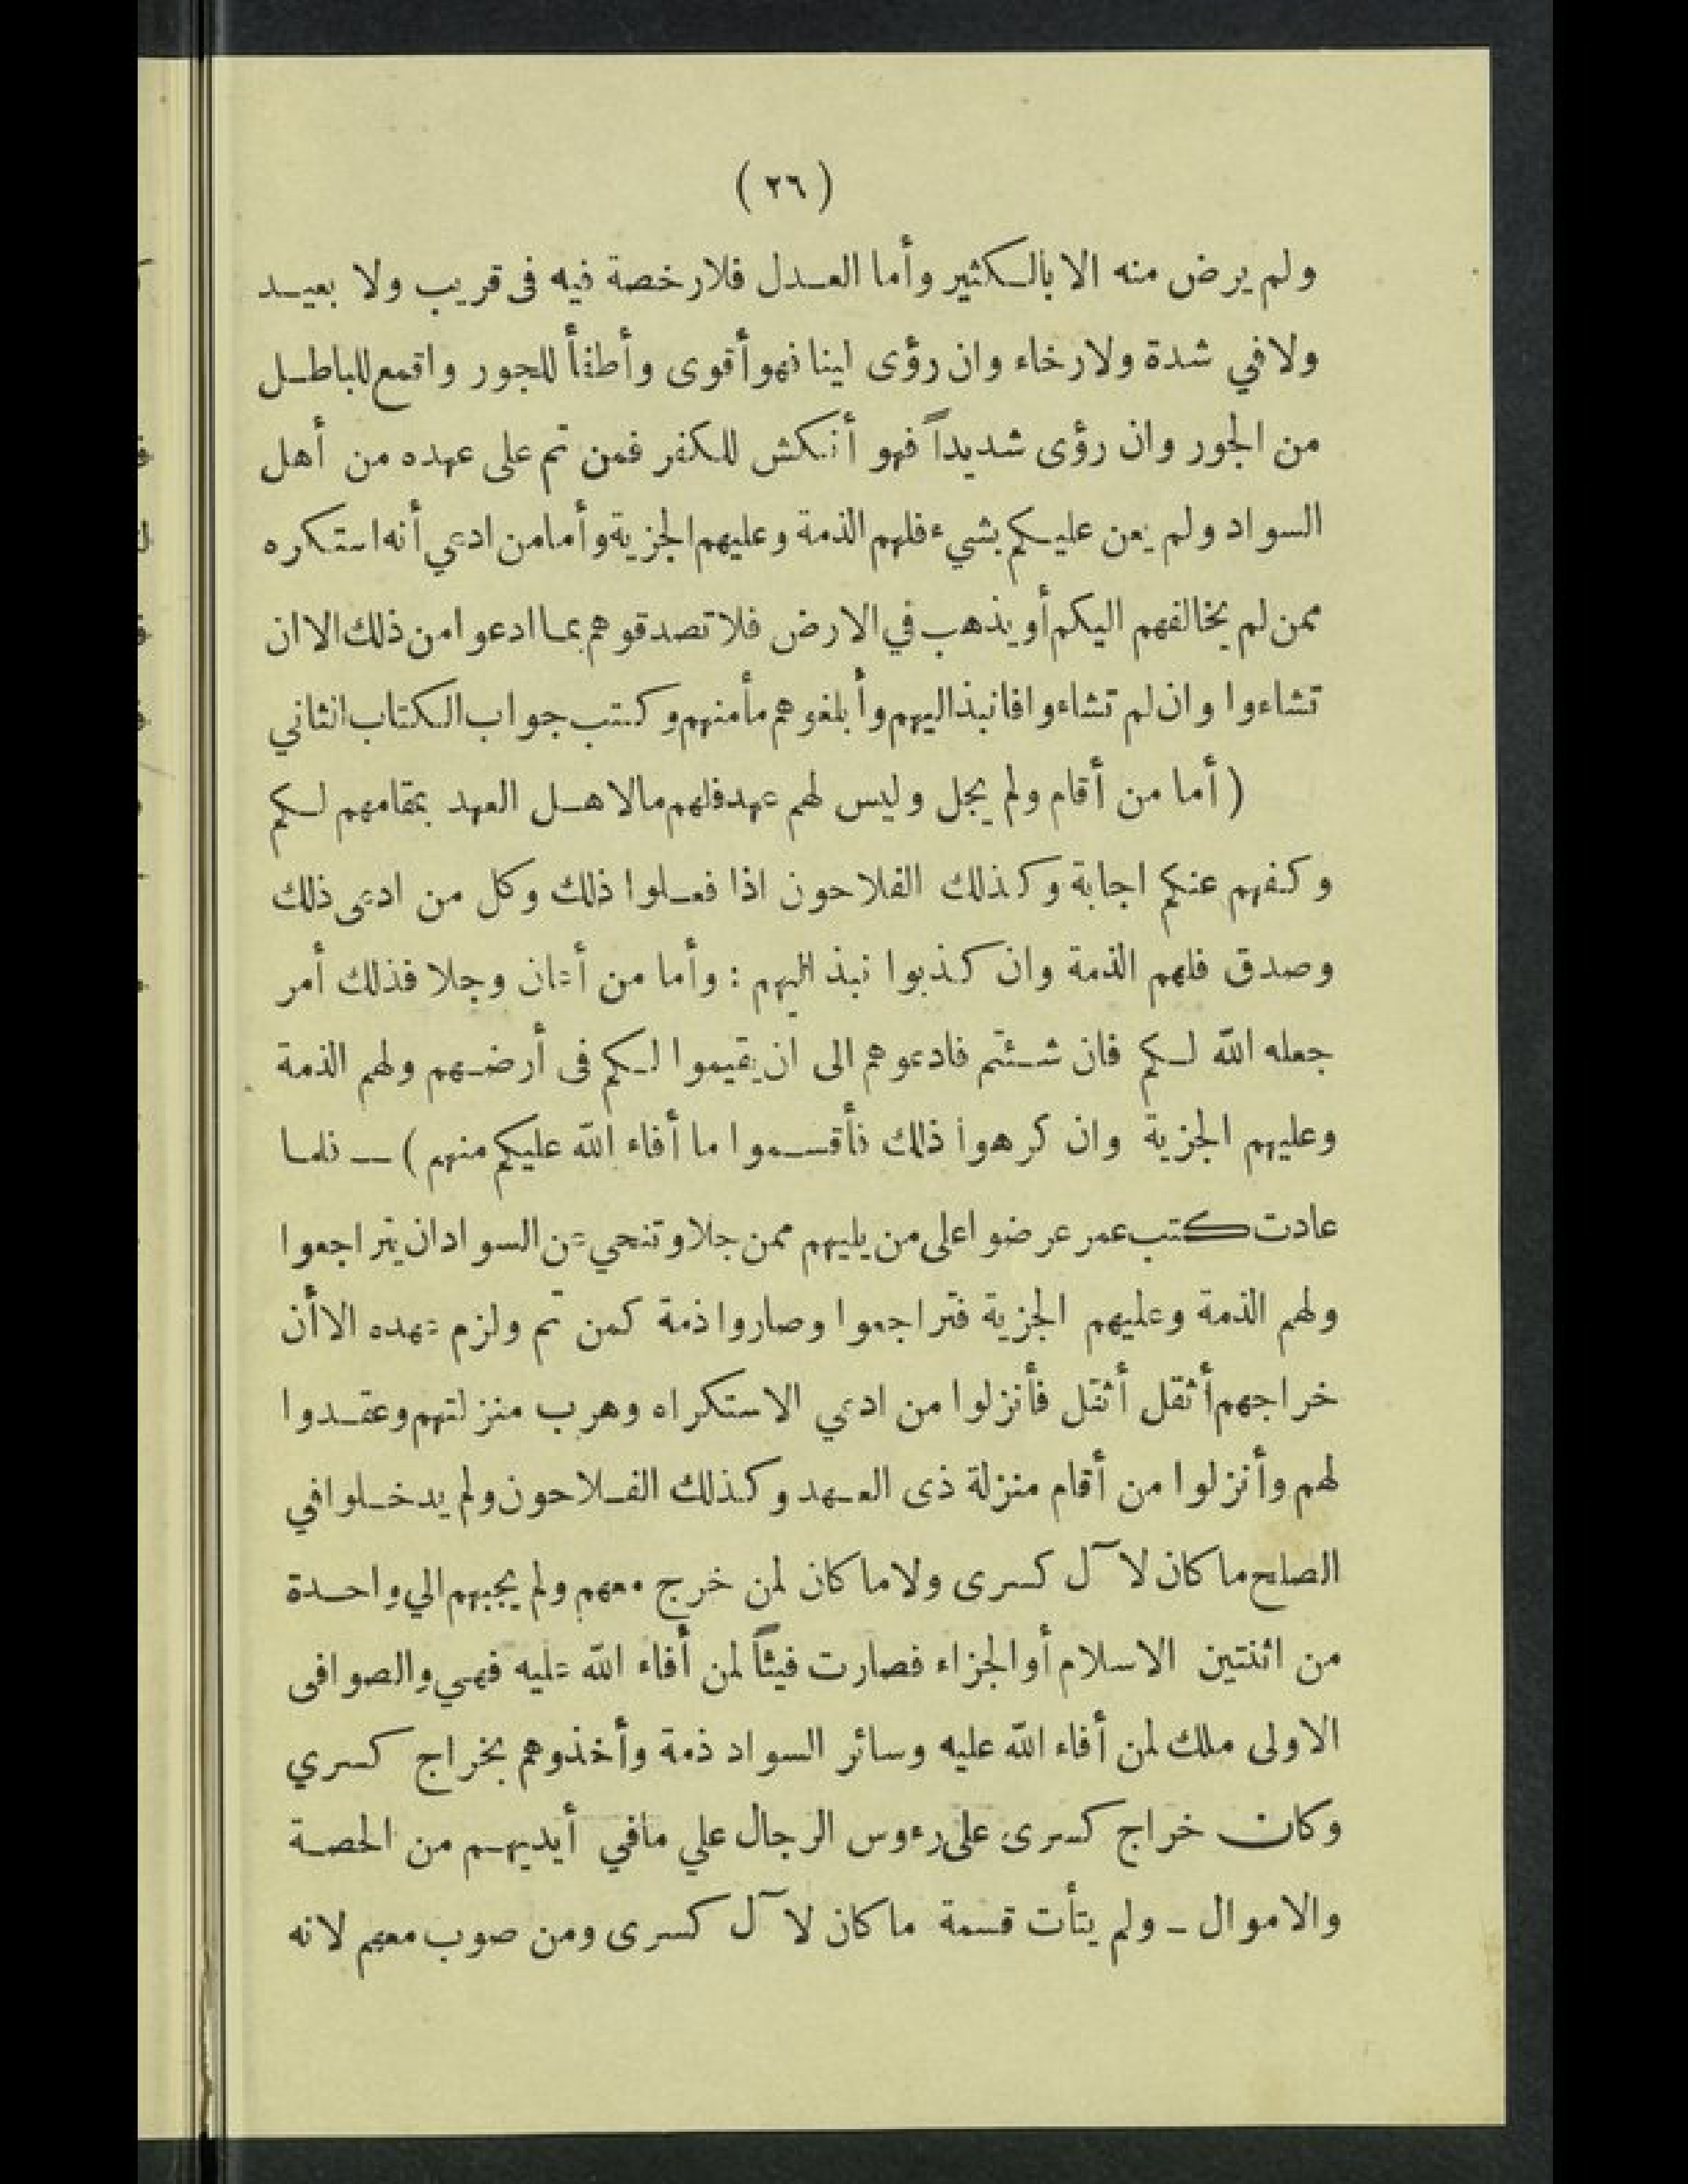 ( ٢٦ )
ولم يرض منه الا بالكثير وأما العدل فلا رخصة فيه فى قريب ولا بعيد
ولا في شدة ولا رخاء وان رؤى لينا فهو أقوى وأطفأ للجور واقمع للباطل
من الجور وان رؤى شديداً فهو أنكش للكفر فمن تم على عهده من أهل
السواد ولم يعن عليكم بشيء فلهم الذمة وعليهم الجزية وأما من ادعي أنه استكره
ممن لم يخالفهم اليكم أو يذهب في الارض فلا تصدقوهم بما ادعوا من ذلك الا ان
تشاءوا وان لم تشاءوا فانبذ اليهم وأبلغوهم مأمنهم وكتب جواب الكتاب الثاني
( أما من أقام ولم يجل وليس لهم عهد فلهم ما لاهل العهد بمقامهم لكم
وكفهم عنكم اجابة وكذلك الفلاحون اذا فعلوا ذلك وكل من ادعى ذلك
وصدق فلهم الذمة وان كذبوا نبذ اليهم : وأما من أعان وجلا فذلك أمر
جعله الله لكم فان شئتم فادعوهم الى ان يقيموا لكم فى أرضهم ولهم الذمة
وعليهم الجزية وان كرهوا ذلك فأقسموا ما أفاء الله عليكم منهم ) — فلما
عادت كتب عمر عرضوا على من يليهم ممن جلا وتنحي عن السواد ان يتراجعوا
ولهم الذمة وعليهم الجزية فتراجعوا وصاروا ذمة كمن تم ولزم عهده الا أن
خراجهم أثقل أثقل فأنزلوا من ادعي الاستكراه وهرب منزلتهم وعقدوا
لهم وأنزلوا من أقام منزلة ذى العهد وكذلك الفلاحون ولم يدخلوا في
الصلح ما كان لآل كسرى ولا ما كان لمن خرج معهم ولم يجبهم الي واحدة
من اثنتين الاسلام أو الجزاء فصارت فيئاً لمن أفاء الله عليه فهي والصوافى
الاولى ملك لمن أفاء الله عليه وسائر السواد ذمة وأخذوهم بخراج كسري
وكان خراج كسرى على رءوس الرجال علي ما في أيديهم من الحصة
والاموال — ولم يتأت قسمة ما كان لآل كسرى ومن صوب معهم لانه